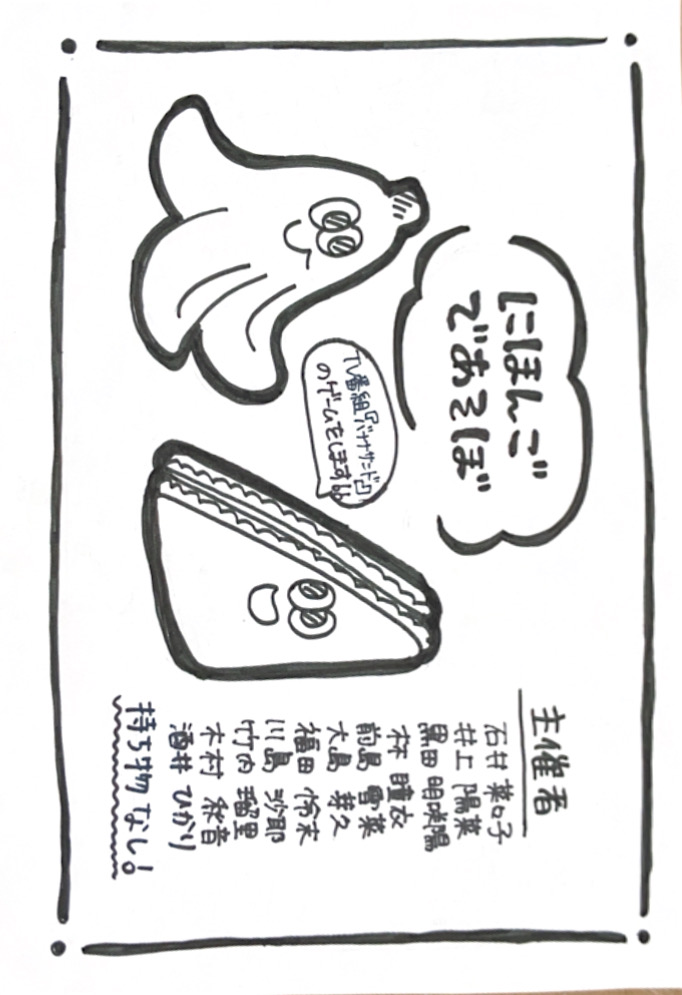 にほんご
であそぼ
TV番組『バナナサンド』
のゲームをします!!
主催者
石井 菜々子
井上 陽菜
黒田 明咲陽
林 瞳衣
前島 雪菜
大島 芽久
福田 怜末
川島 沙耶
竹内 瑠里
木村 秋音
酒井 ひかり
持ち物なし!